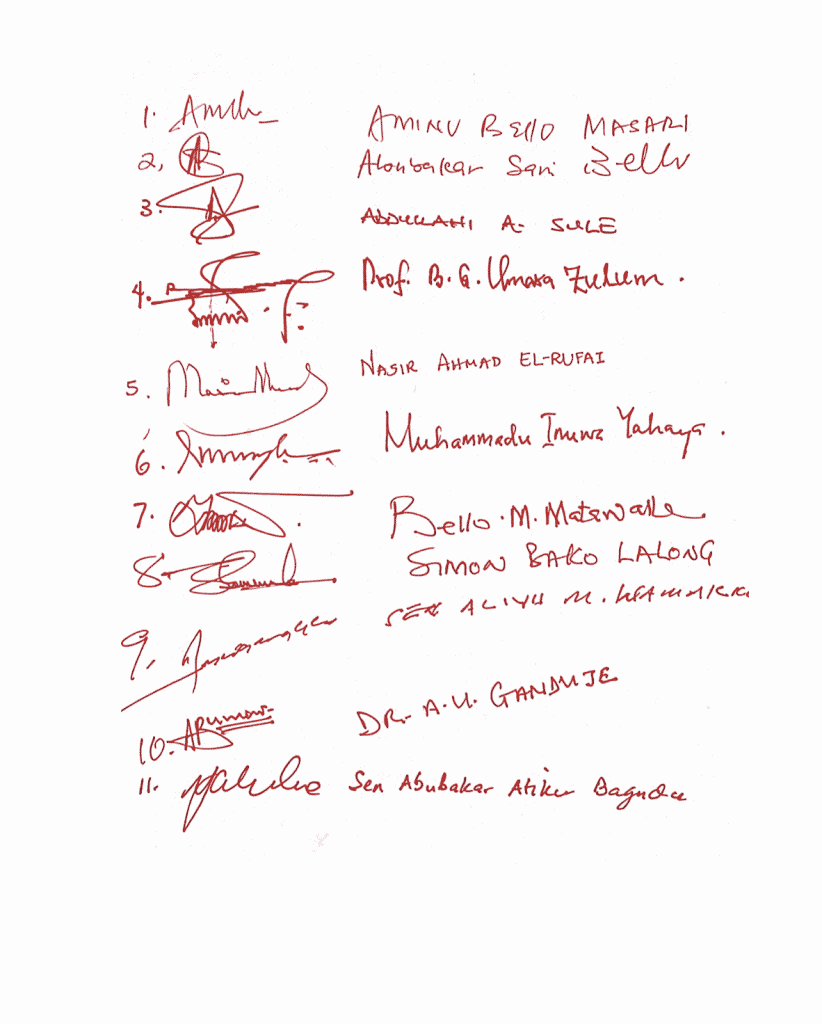 1. AMINU BELLO MASARI
2, Abubakar Sani Bello
3. ABDULLAHI A. SULE
4. Prof. B. G. Umara Zulum.
5. NASIR AHMAD EL-RUFAI
6. Muhammadu Inuwa Yahaya.
7. Bello. M. Matawalle
8. SIMON BAKO LALONG
9. SEN ALIYU M. WAMAKKO
10. DR. A.U. GANDUJE
11. Sen Abubakar Atiku Bagudu